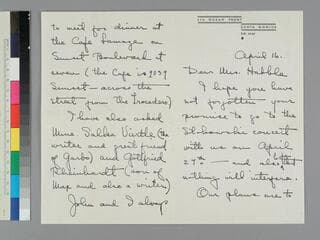 OCEAN FRONT
SANTA MONICA
April 16.
Dear Mrs. Hubble
I hope you have
not forgotten your
promise to go to the
Stokowski concert
with us on April
27th — and also that
nothing will interfere.
Our plans are to
to meet for dinner at
the Cafe Lamaze on
Sunset Boulevard at
seven (the Cafe is 9039
Sunset — across the
street from The Trocadero)
I have also asked
Mme. Salka Viertel (the
writer and great friend
of Garbo) and Gottfried
Rheinhardt (son of
Max and also a writer)
John and I always